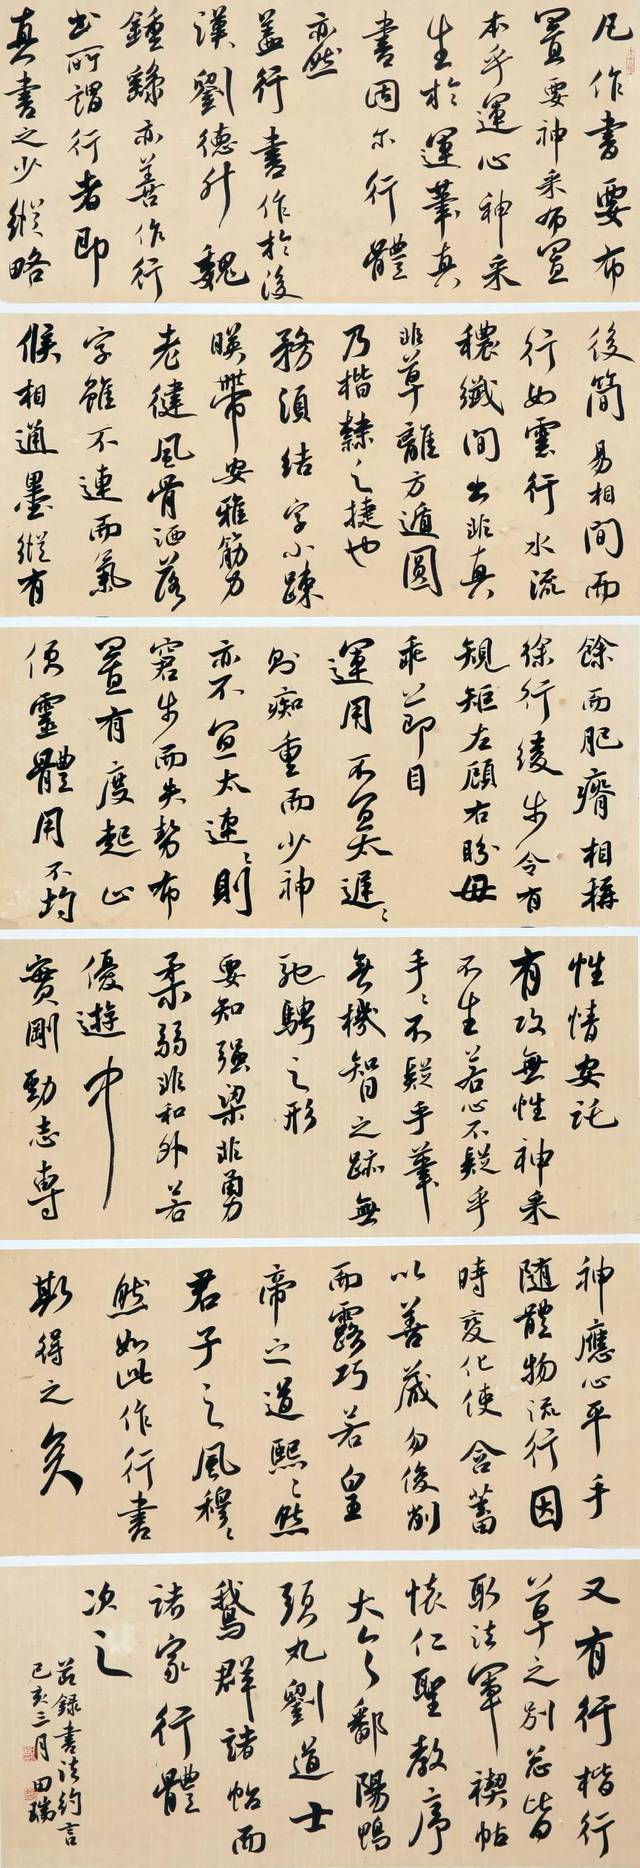 凡作書要布
置要神采布置
本乎運心神采
生於運筆真
書固尔行體
亦然
蓋行書作於後
漢劉德升魏
鍾繇亦善作行
書所謂行者即
真書之少縱略
後簡易相間而
行如雲行水流
穠纖間出非真
非草離方遁圓
乃楷隸之捷也
務須結字小踈
暎帶安雅筋力
老健風骨洒落
字雖不連而氣
候相通墨縱有
餘而肥瘠相稱
徐行緩步令有
規矩左顧右盼毋
乖節目
運用不宜太遲遲
則痴重而少神
亦不宜太速速則
窘步而失勢布
置有度起止
便靈體用不均
性情安託
有攻無性神采
不生若心不疑乎
手手不疑乎筆
無機智之跡無
馳騁之形
要知強梁非勇
柔弱非和外若
優遊中
實剛勁志專
神應心平手
隨體物流行因
時變化使含蓄
以善藏勿峻削
而露巧若皇
帝之道熙熙然
君子之風穆穆
然如此作行書
斯得之矣
又有行楷行
草之別總皆
取法軍禊帖
懷仁聖教序
大令鄱陽鴨
頭丸劉道士
鵝群諸帖而
諸家行體
次之
節錄書法約言
己亥三月田瑞